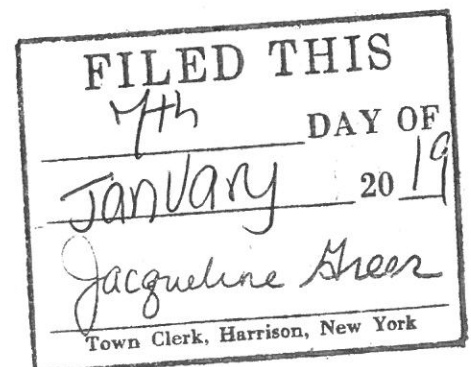 FILED THIS
7th DAY OF
January 20 19
Jacqueline Greer
Town Clerk, Harrison, New York